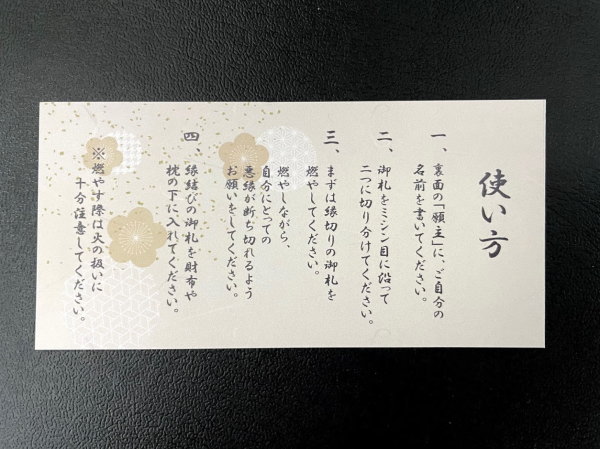 使い方
一、裏面の「願主」に、ご自分の
名前を書いてください。
二、御札をミシン目に沿って
二つに切り分けてください。
三、まずは縁切りの御札を
燃やしてください。
燃やしながら、
自分にとっての
悪縁が断ち切れるよう
お願いをしてください。
四、縁結びの御札を財布や
枕の下に入れてください。
※燃やす際は火の扱いに
十分注意してください。